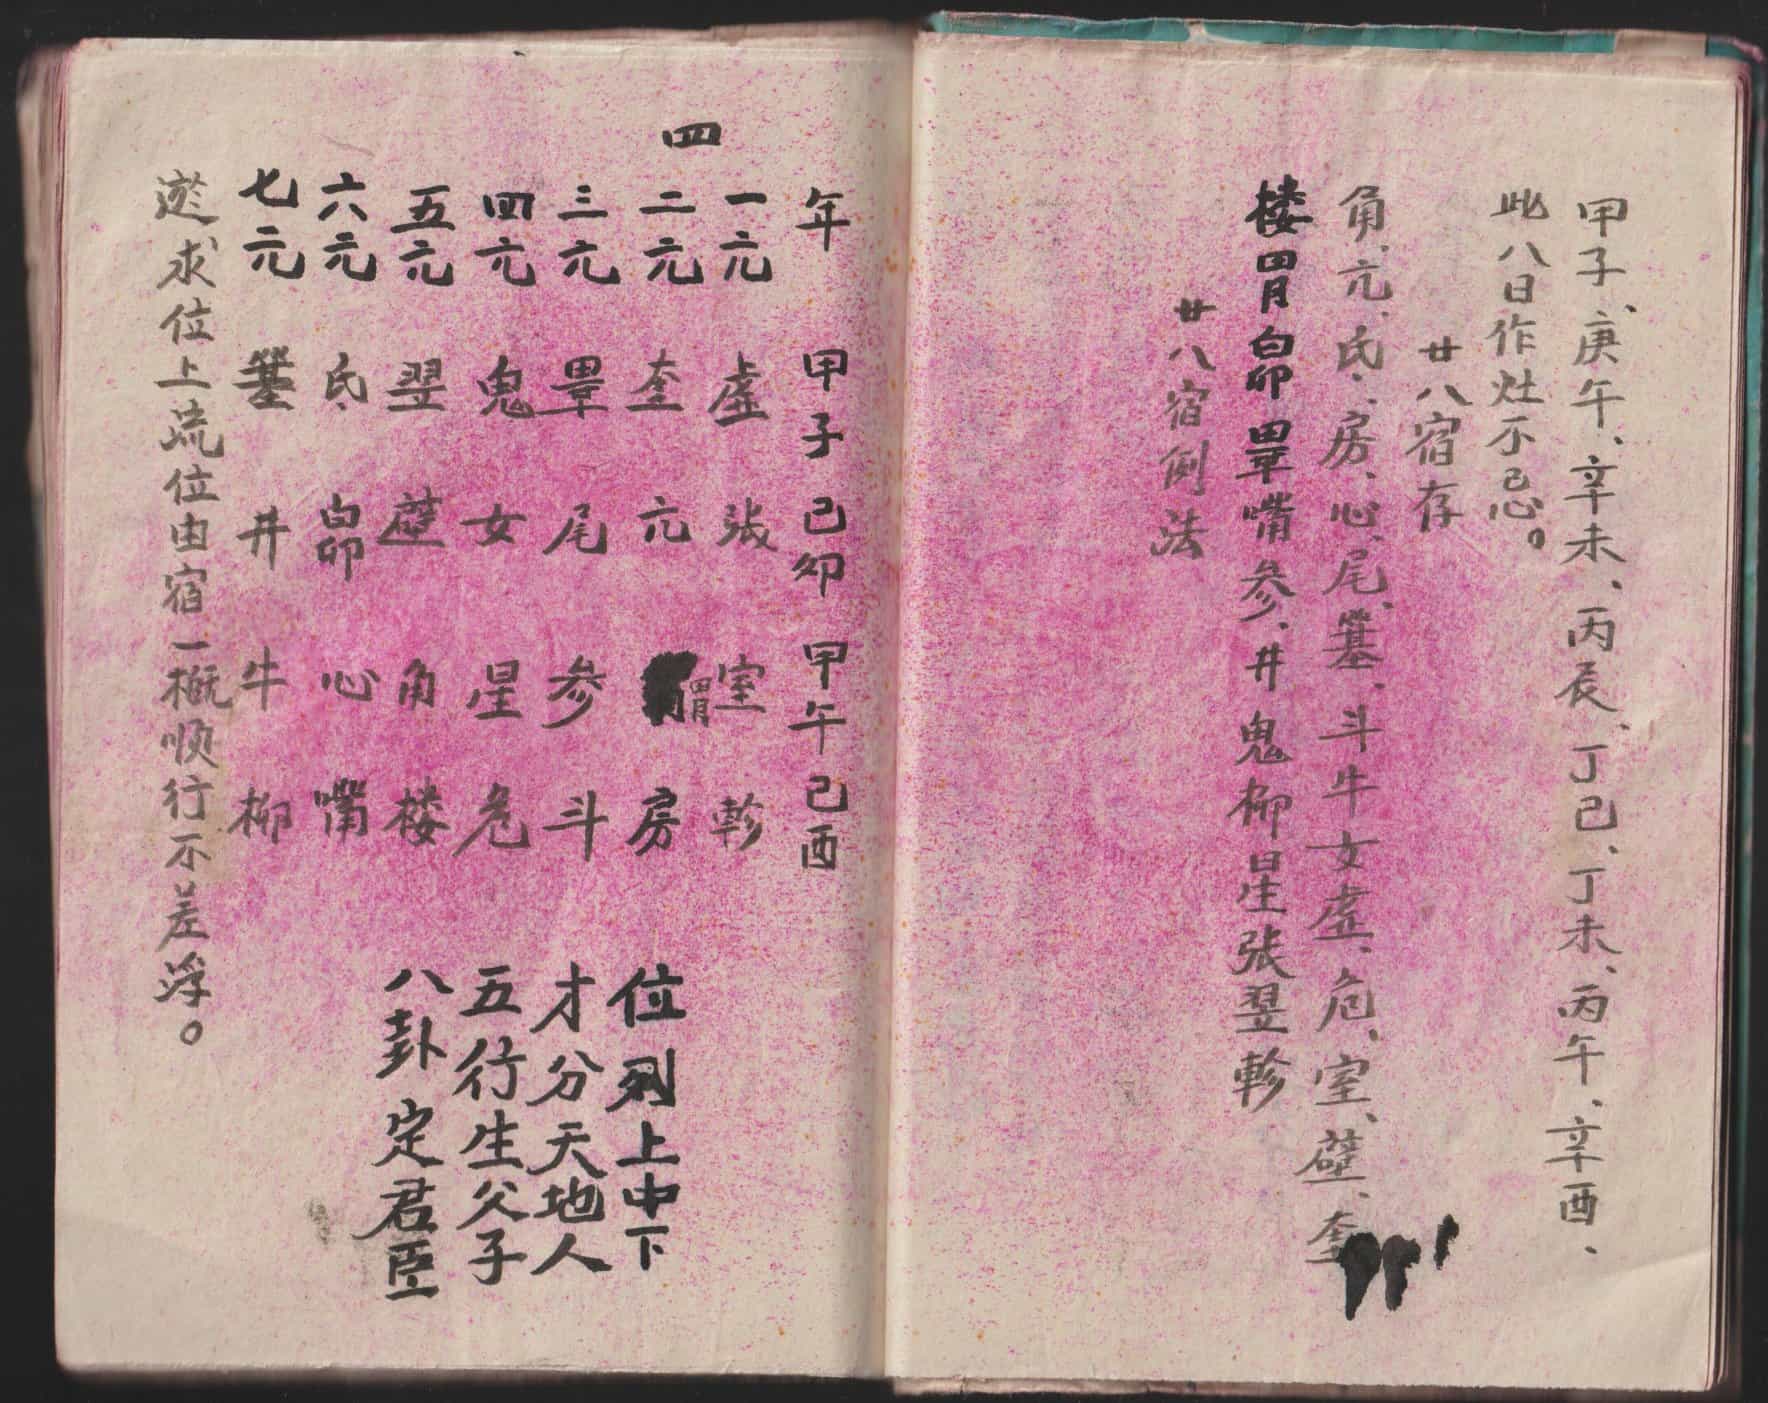 甲子、庚午、辛未、丙辰、丁己、丁未、丙午、辛酉、
此八日作灶不忌。
廿八宿存
角、亢、氐、房、心、尾、箕、斗牛女虚、危、室、壁、奎
楼胃昴畢嘴参、井鬼柳星張翌軫
廿八宿例法
年 甲子 己卯 甲午 己酉
一元 虚 張 室 軫
四
二元 奎 亢 胃 房 位列上中下
三元 畢 尾 参 斗 才分天地人
四元 鬼 女 星 危 五行生父子
五元 翌 壁 角 楼 八卦定君臣
六元 氐 昴 心 嘴
七元 箕 井 牛 柳
求位上流位由宿一概顺行不差